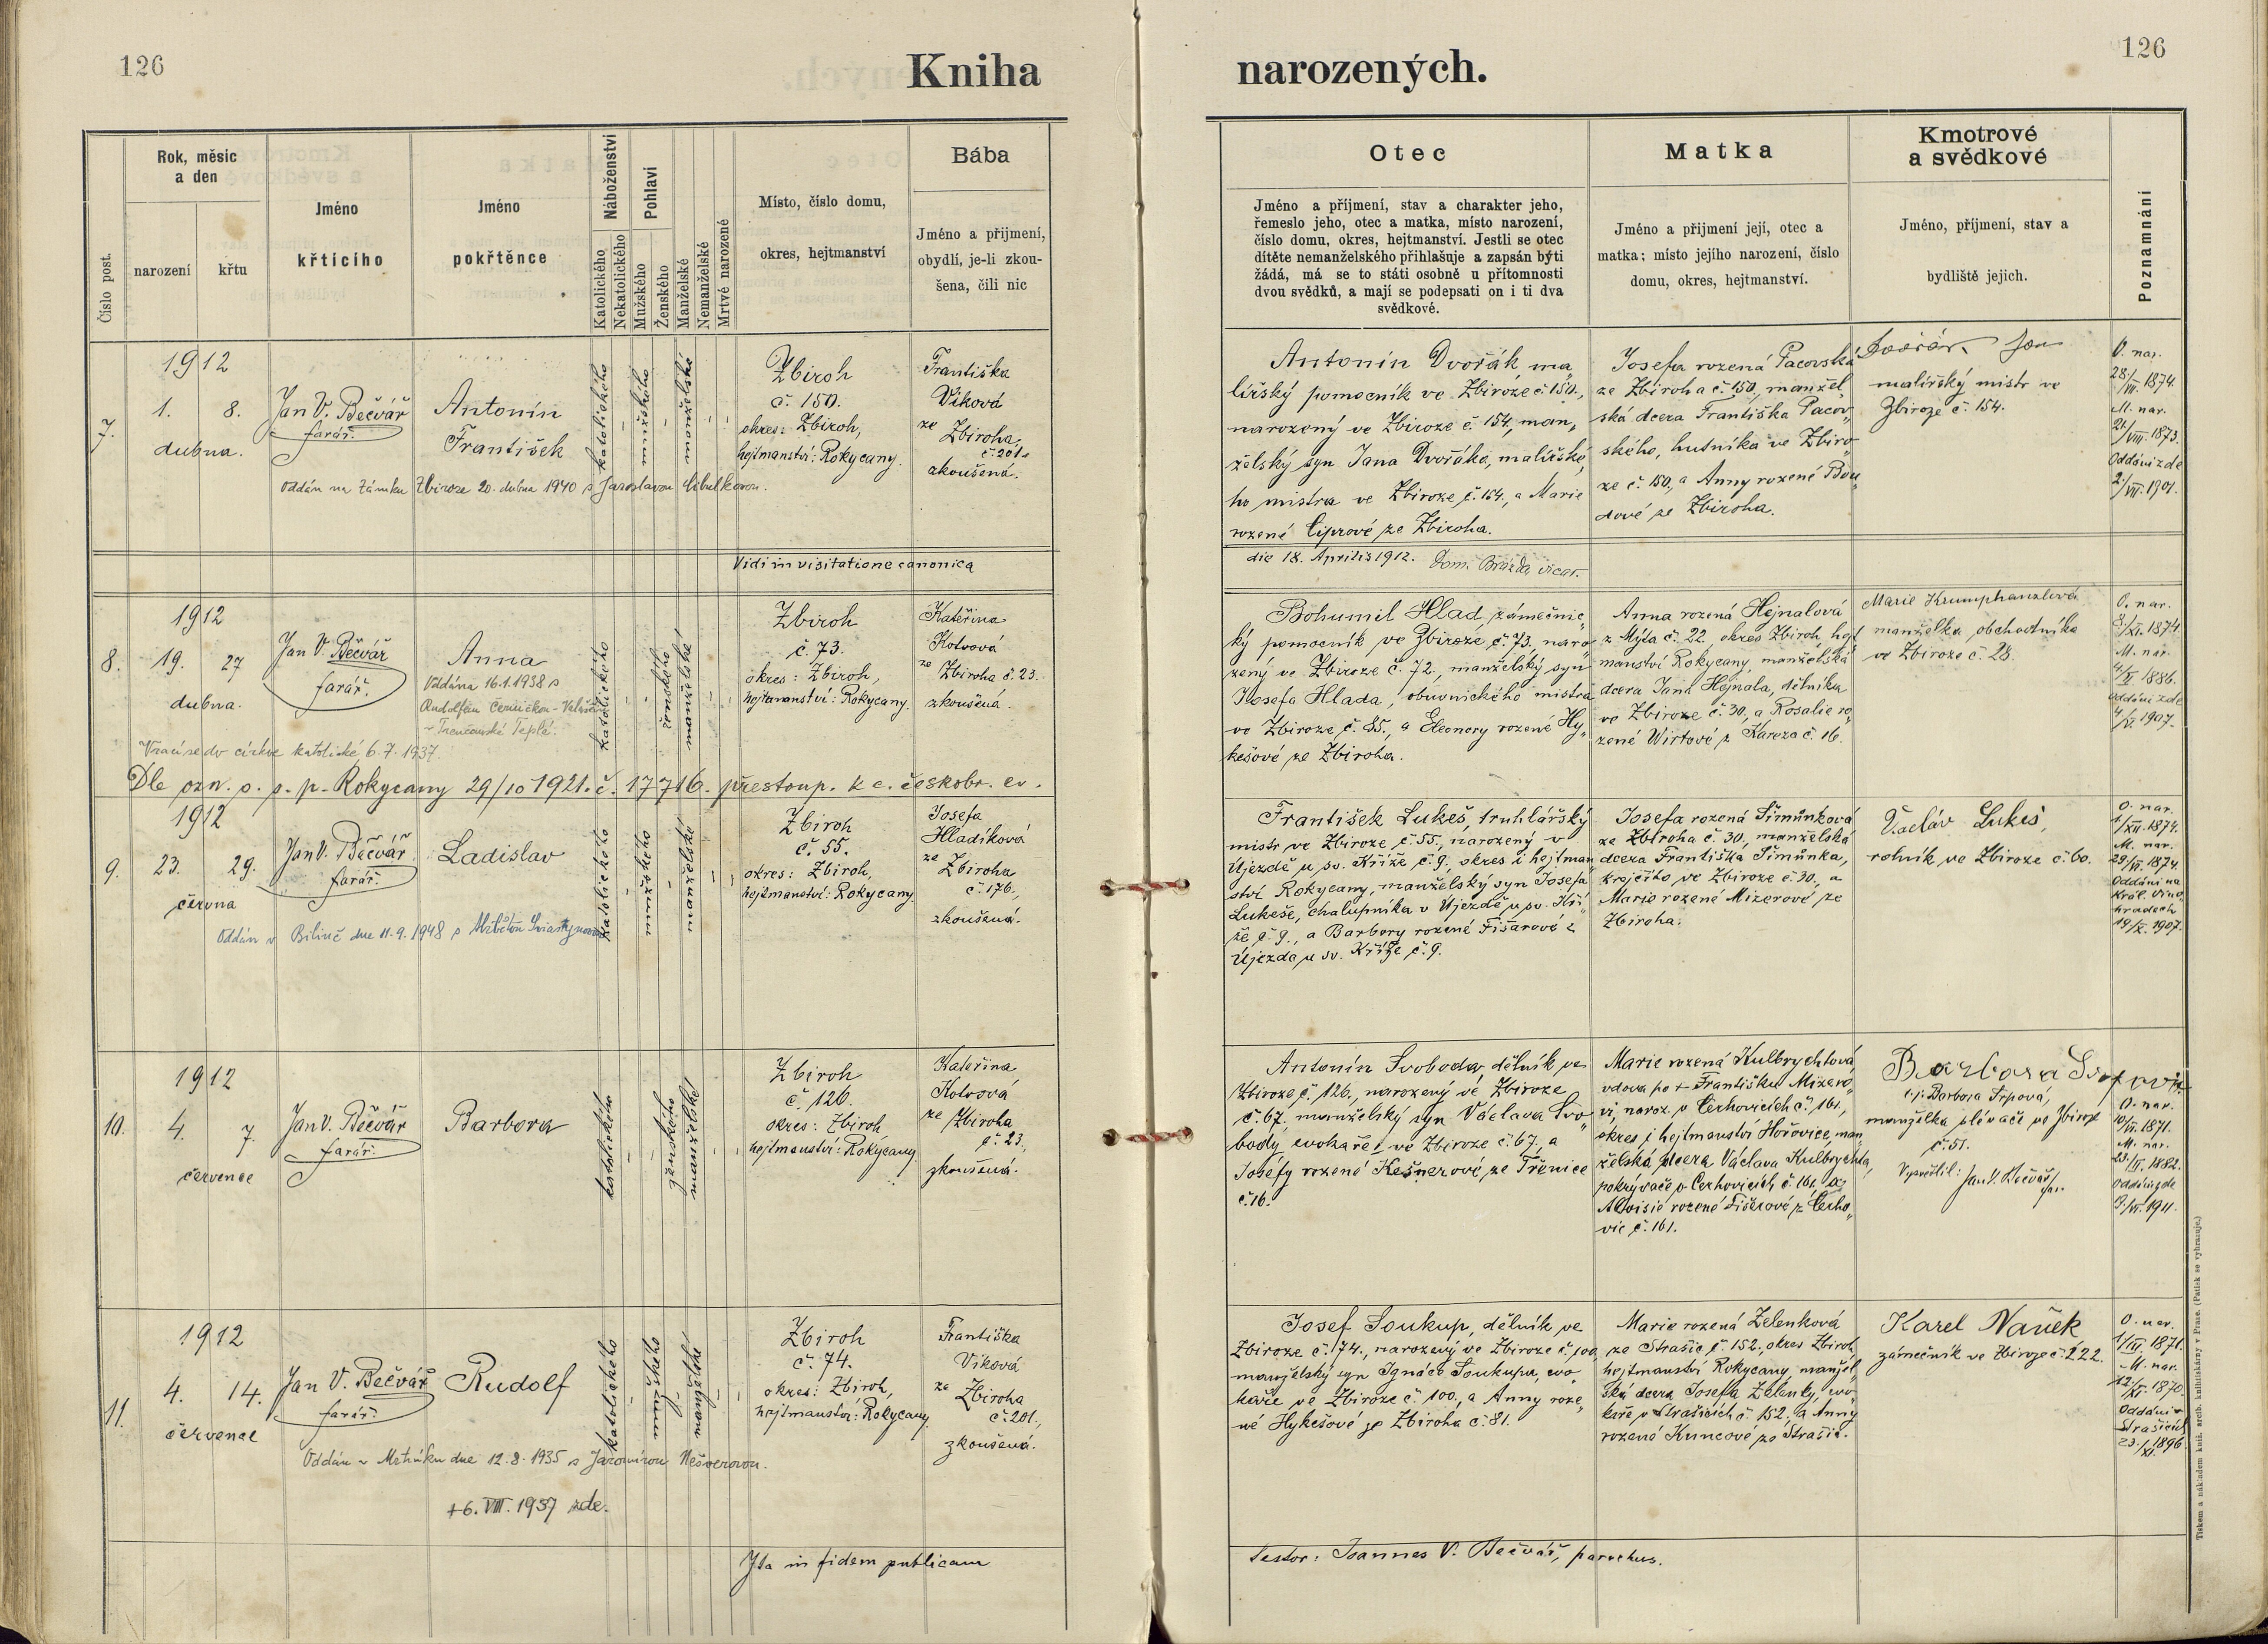 126
Kniha
narozených.
126
Číslo post.
Rok, měsíc
a den
narození
křtu
Jméno
křtícího
Jméno
pokřtěnce
Náboženství
Katolického
Nekatolického
Pohlaví
Mužského
Ženského
Manželské
Nemanželské
Mrtvé narozené
Místo, číslo domu,
okres, hejtmanství
Bába
Jméno a přijmení,
obydlí, je-li zkou-
šena, čili nic
Otec
Jméno a příjmení, stav a charakter jeho,
řemeslo jeho, otec a matka, místo narození,
číslo domu, okres, hejtmanství. Jestli se otec
dítěte nemanželského přihlašuje a zapsán býti
žádá, má se to státi osobně u přítomnosti
dvou svědků, a mají se podepsati on i ti dva
svědkové.
Matka
Jméno a přijmení její, otec a
matka; místo jejího narození, číslo
domu, okres, hejtmanství.
Kmotrové
a svědkové
Jméno, příjmení, stav a
bydliště jejich.
Poznamnání
7.
1912
1. 8.
dubna.
Jan V. Bečvář
farář.
Antonín
František
katolického
mužského
manželské
Zbiroh
č. 150.
okres: Zbiroh,
hejtmanství: Rokycany.
Františka
Víková
ze
Zbiroha,
č. 201.
zkoušená.
Oddán na Zámku Zbiroze 20. dubna 1940 s Jaroslavou Cibulkovou.
Antonín Dvořák ma„
lířský pomocník ve Zbiroze č. 150.,
narozený ve Zbiroze č. 154, man„
želský syn Jana Dvořáka, malířské„
ho mistra ve Zbiroze č. 154., a Marie
rozené Ciprové ze Zbiroha.
Josefa rozená Pacovská
ze Zbiroha č. 150, manžel„
ská dcera Františka Pacov„
ského, hutníka ve Zbiro„
ze č. 150, a Anny rozené Bou„
dové ze Zbiroha.
Dvořák Jan
malířský mistr ve
Zbiroze č. 154.
O. nar.
28./VII. 1874.
M. nar.
21./VIII. 1873.
Oddáni zde
2./VII. 1901.
Vidi in visitatione canonica
die 18. Aprilis 1912. Dom. Brázda vicar.
8.
1912
19. 27
dubna.
Jan V. Bečvář
farář.
Anna
Oddána 16.1.1938 s
Rudolfem
Trenčanské Teplá.
katolického
ženského
manželské
Zbiroh
č. 73.
okres: Zbiroh,
hejtmanství: Rokycany.
Kateřina
Kotvová
ze
Zbiroha č. 23.
zkoušená.
Vrací se do církve katolické, 6. 7. 1937.
Dle ozn. o. s. p. Rokycany 29/10 1921. č. 17716. přestoup. k c. českobr. ev.
Bohumil Hlad, zámečnic„
ký pomocník ve Zbiroze, č. 73, naro„
zený ve Zbiroze č. 72, manželský syn
Josefa Hlada, obuvnického mistra
ve Zbiroze č. 85., a Eleonory rozené Hy„
kešové ze Zbiroha.
Anna rozená Hejnalová
z Mýta č. 22, okres Zbiroh, hejt„
manství Rokycany, manželská
dcera Jana Hejnala, dělníka
ve Zbiroze č. 30, a Rosalie ro„
zené Wirtové z Kařeza č. 16.
Marie Krumphanzlová
manželka obchodníka
ve Zbiroze č. 28.
O. nar.
M. nar.
Oddáni zde
9.
1912
23. 29.
června
Jan V. Bečvář
farář.
Ladislav
katolického
mužského
manželské
Zbiroh
č. 55.
okres: Zbiroh,
hejtmanství: Rokycany.
Josefa
Hladíková
ze
Zbiroha
č. 176,
zkoušená.
Oddán v Bílině dne 11.9.1948 s
František Lukeš, truhlářský
mistr ve Zbiroze č. 55., narozený v
Újezdě u sv. Kříže č. 9., okres i hejtman„
ství Rokycany, manželský syn Josefa
Lukeše, chalupníka v Újezdě u sv. Kří„
že, č. 9., a Barbory rozené Fišarové z
Újezda u sv. Kříže č. 9.
Josefa rozená Šimůnková
ze Zbiroha č. 30, manželská
dcera Františka Šimůnka,
krejčího ve Zbiroze č. 30, a
Marie rozené Mizerové ze
Zbiroha.
Václav Lukeš,
rolník ve Zbiroze č. 60.
O. nar.
1./XII. 1874.
M. nar.
29./VI. 1874.
Oddáni na
Král. Vino„
hradech
19./X. 1907.
10.
1912
4. 7.
července
Jan V. Bečvář
farář.
Barbora
katolického
ženského
manželské
Zbiroh
č. 126.
okres: Zbiroh
hejtmanství: Rokycany.
Kateřina
Kotvová
ze Zbiroha
č. 23,
zkoušená.
Antonín Svoboda, dělník ve
Zbiroze č. 126., narozený ve Zbiroze
č. 67, manželský syn Václava Svo„
body, cvokaře, ve Zbiroze č. 67, a
Josefy rozené Kešnerové, ze Třenice
č. 16.
Marie rozená Kulbrychtová,
vdova po + Františku Mizero„
vi, naroz. v Cerhovicích č. 161.,
okres i hejtmanství Hořovice, man„
želská dcera Václava Kulbrychta,
pokrývače v Cerhovicích č. 161. a
Aloisie rozené Fišerové z Cerho„
vic č. 161.
Barbora
t. j. Barbora Srpová,
manželka plevače ve Zbiroze
č. 51.
Vysvětlil: Jan V. Bečvář, far.
O. nar.
10/VI. 1871.
M. nar.
23/II. 1882.
Oddáni zde
1911.
11.
1912
4. 14.
července
Jan V. Bečvář
farář.
Rudolf
katolického
mužského
manželské
Zbiroh
č. 74.
okres: Zbiroh,
hejtmanství: Rokycany.
Františka
Víková
ze Zbiroha
č. 201.,
zkoušená.
Oddán v Mrtníku dne 12.8.1935 s Jaromírou Nešverovou.
+ 6. VIII. 1957 zde.
Josef Soukup, dělník ve
Zbiroze č. 74., narozený ve Zbiroze č. 100,
manželský syn Ignáce Soukupa, cvo„
kaře ve Zbiroze č. 100., a Anny roze„
né Hykešové ze Zbiroha č. 81.
Marie rozená Zelenková
ze Strašic č. 152., okres Zbiroh,
hejtmanství Rokycany, manžel„
ská dcera Josefa Zelenky, cvo„
kaře v Strašicích č. 152., a Anny
rozené Kuncové ze Strašic.
Karel Vaněk
zámečník ve Zbiroze č. 222.
O. nar.
1./III. 1871.
M. nar.
12./XI. 1870.
Oddáni v
Strašicích
23./XI. 1896.
Ita in fidem publicam
testor: Joannes V. Bečvář, parochus.
Tiskem a nákladem kníž. arcib. knihtiskárny v Praze. (Patisk se vyhrazuje.)